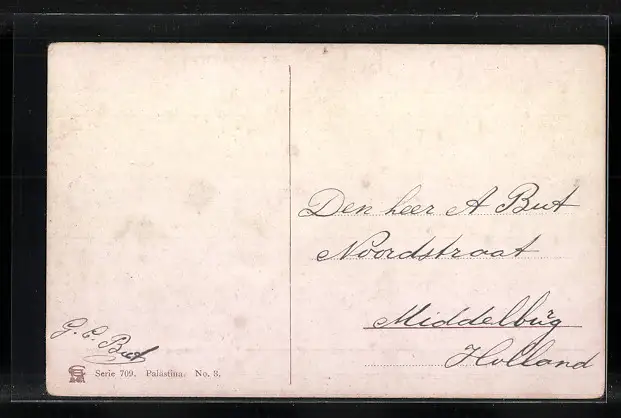 Den heer A But
Noordstraat
Middelbŭrg
Holland
G. C. But
Serie 709. Palästina. No. 3.